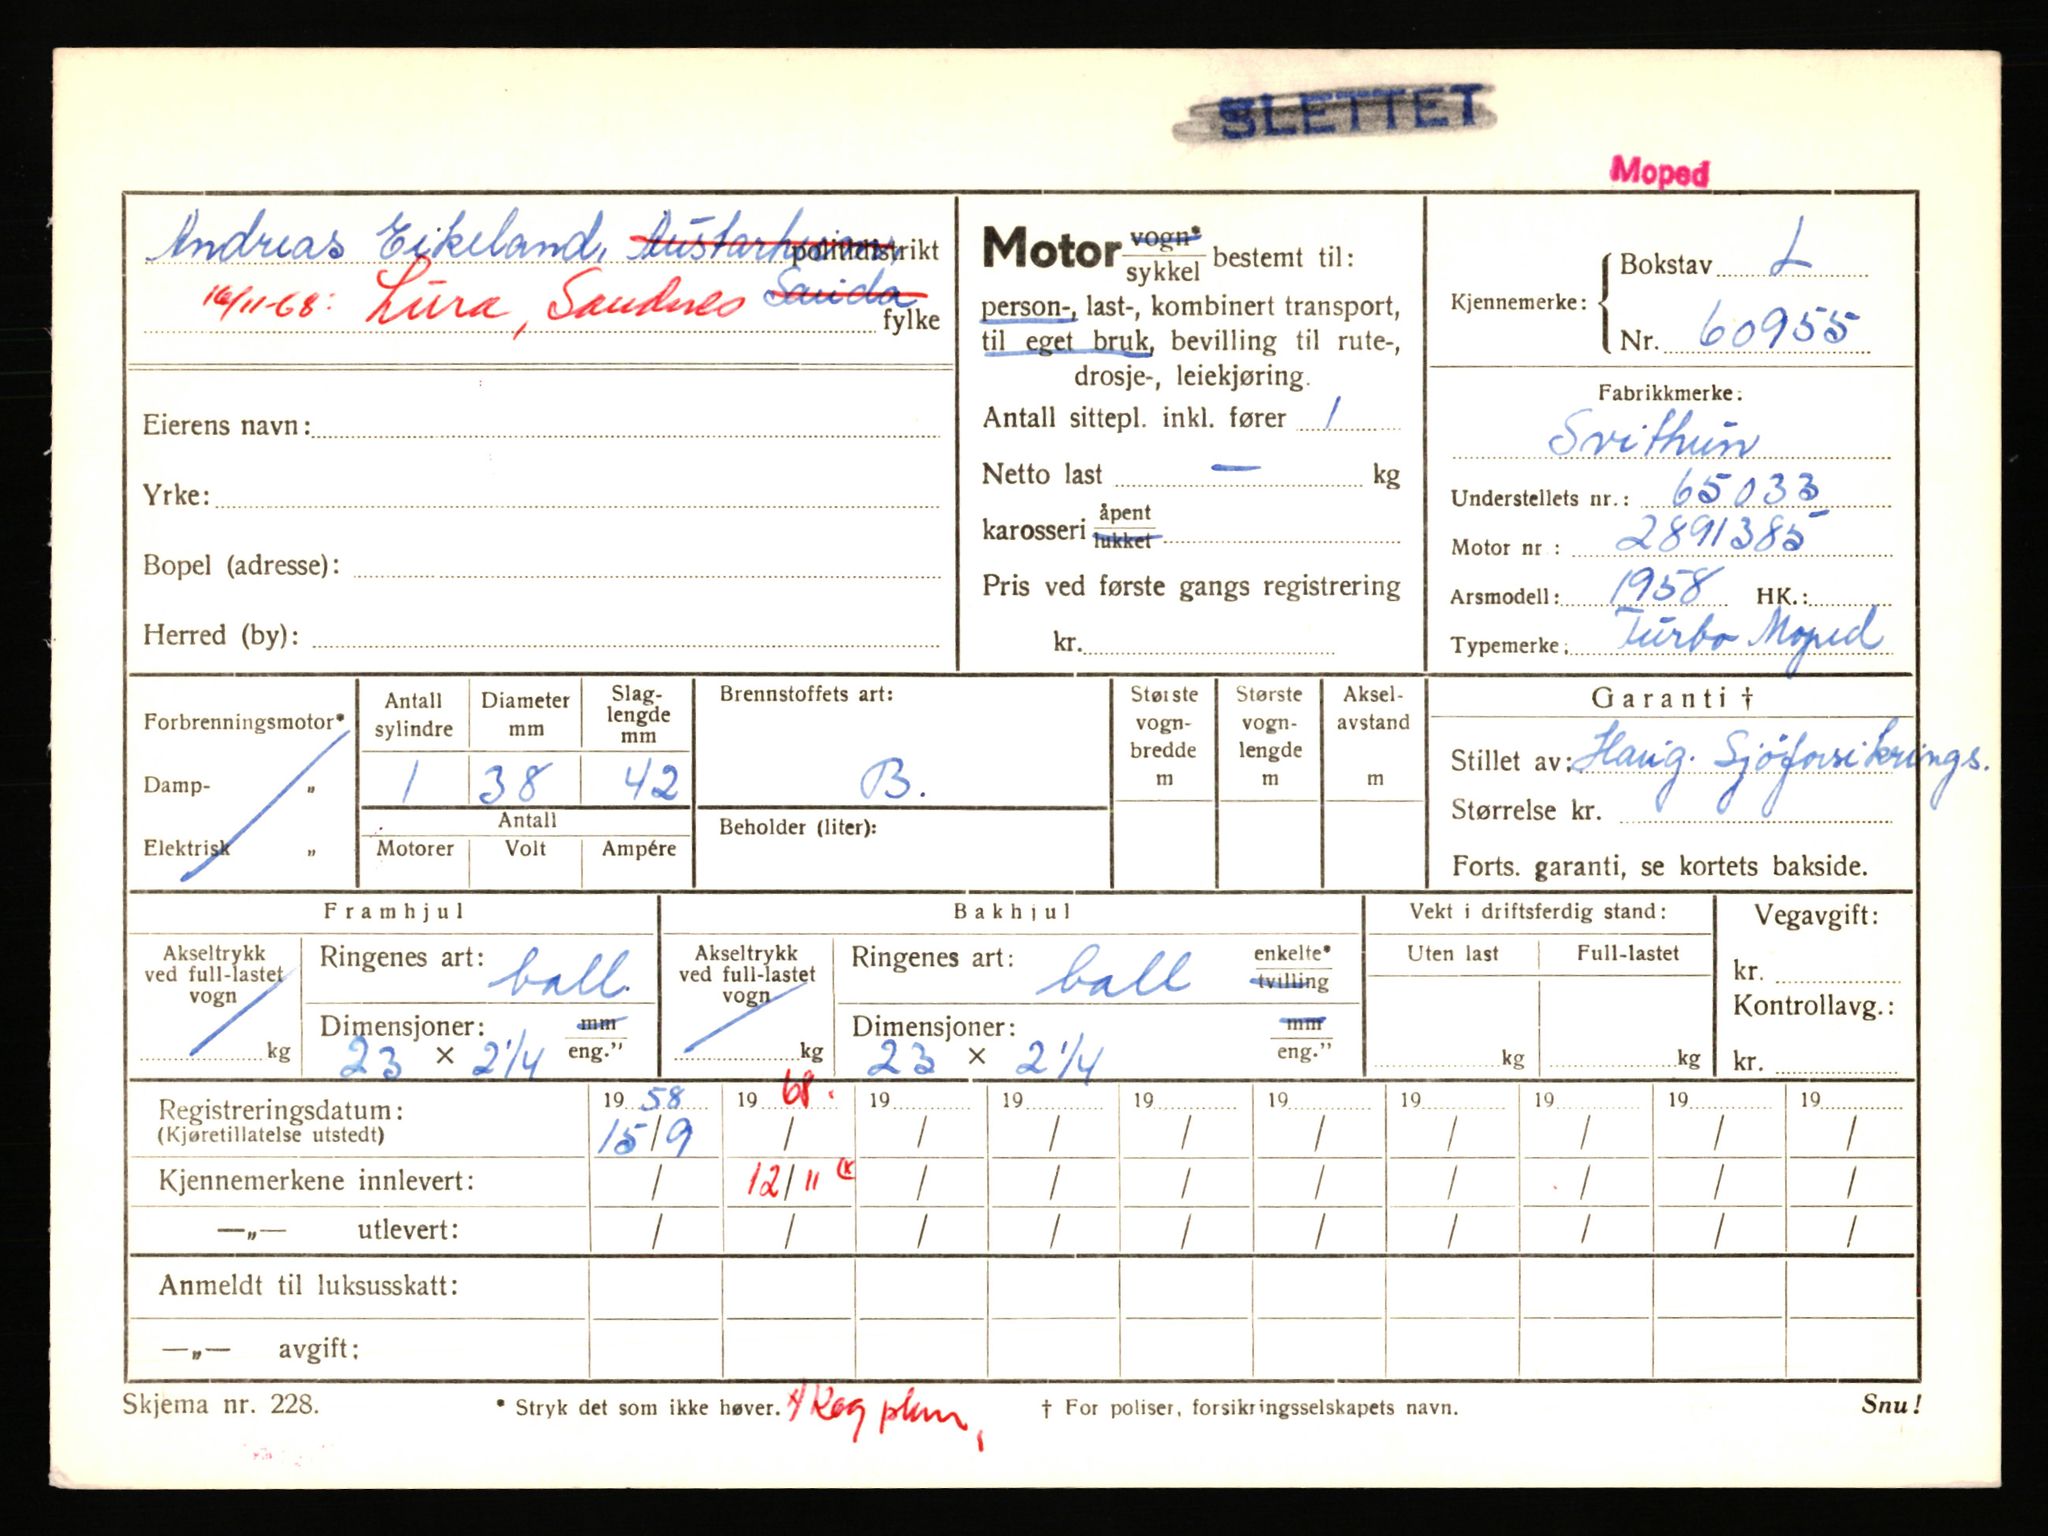 SLETTET
Moped
Andreas Eikeland, politidistrikt
16/11-68: Lura, Sandnes Sauda fylke
Eierens navn:
Yrke:
Bopel (adresse):
Herred (by):
Motor vogn* / sykkel bestemt til:
person-, last-, kombinert transport,
til eget bruk, bevilling til rute-,
drosje-, leiekjøring.
Antall sittepl. inkl. fører 1
Netto last — kg
karosseri åpent / lukket
Pris ved første gangs registrering
kr.
Kjennemerke: Bokstav L
Nr. 60955
Fabrikkmerke:
Svithun
Understellets nr.: 65033
Motor nr: 2891385
Arsmodell: 1958 HK.:
Typemerke: Turbo Moped
Forbrenningsmotor*
Damp- "
Elektrisk "
Antall sylindre
Diameter mm
Slag-lengde mm
1 38 42
Antall
Motorer Volt Ampére
Brennstoffets art:
B.
Beholder (liter):
Største vogn-bredde m
Største vogn-lengde m
Aksel-avstand m
Garanti †
Stillet av: Haug. Sjöforsikrings.
Størrelse kr.
Forts. garanti, se kortets bakside.
Framhjul
Akseltrykk ved full-lastet vogn
kg
Ringenes art: ball.
Dimensjoner: mm / eng."
23 × 2 1/4
Bakhjul
Akseltrykk ved full-lastet vogn
kg
Ringenes art: ball enkelte* / tvilling
Dimensjoner: mm / eng."
23 × 2 1/4
Vekt i driftsferdig stand:
Uten last Full-lastet
kg kg
Vegavgift:
kr.
Kontrollavg.:
kr.
Registreringsdatum: 19 58 19 68. 19 19 19 19 19 19 19 19
(Kjøretillatelse utstedt) 15/9 / / / / / / / / /
Kjennemerkene innlevert: / 12/11 (x / / / / / / / /
—„— utlevert: / / / / / / / / / /
Anmeldt til luksusskatt:
—„— avgift:
Skjema nr. 228.
* Stryk det som ikke høver.
† For poliser, forsikringsselskapets navn.
Snu!